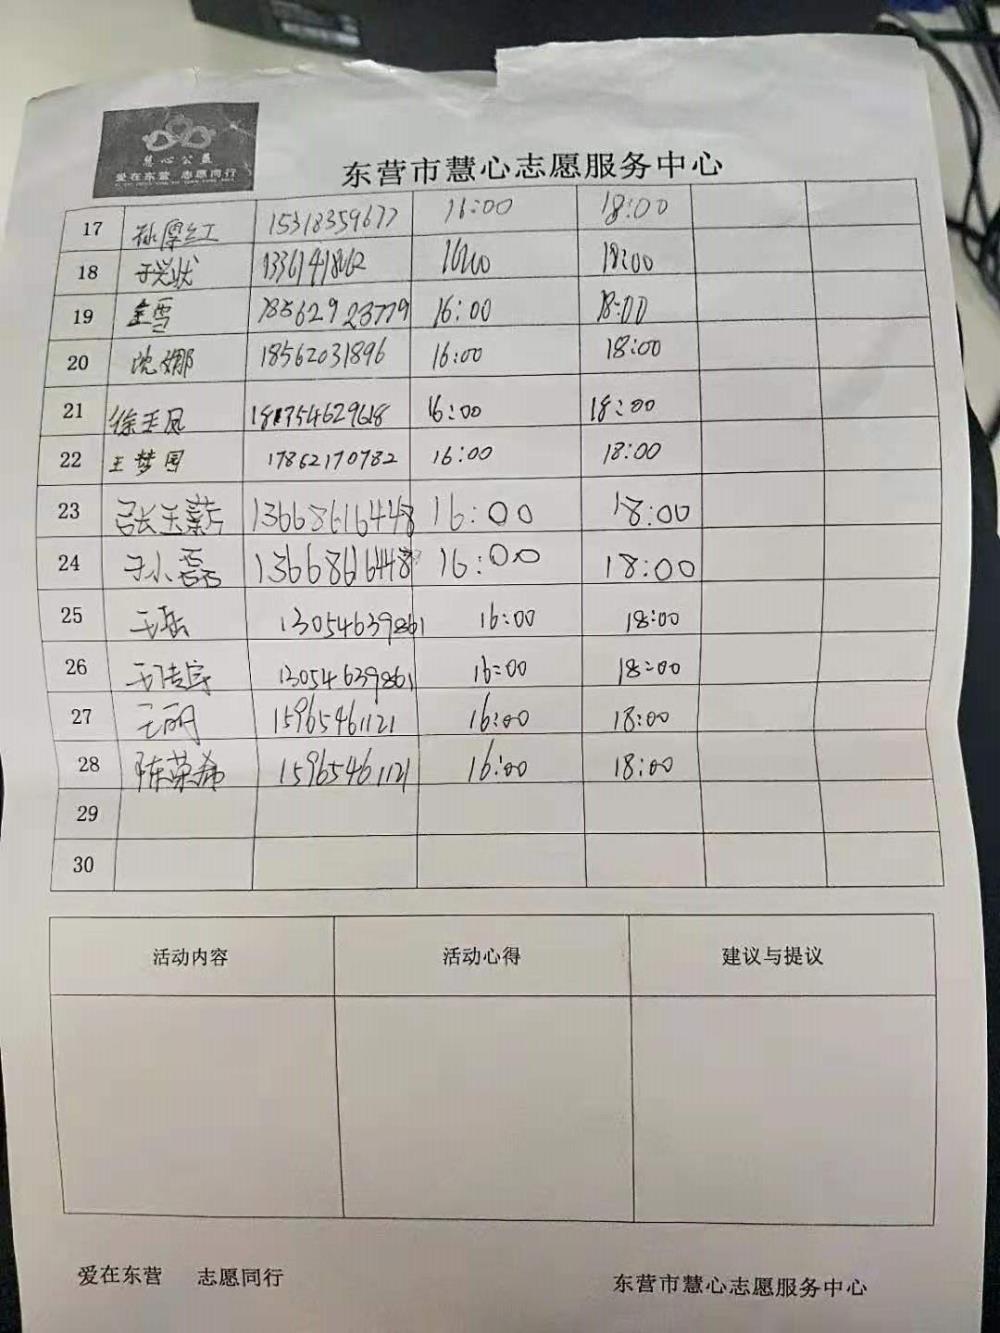 慧心公益
爱在东营 志愿同行
东营市慧心志愿服务中心
17 孙厚红 15318359677 16:00 18:00
18 18:00
19 金雪 18562923779 16:00 18:00
20 沈娜 18562031896 16:00 18:00
21 徐玉凤 16:00 18:00
22 王梦园 17862170782 16:00 18:00
23 张玉薪 13668616448 16:00 18:00
24 于小磊 13668616448 16:00 18:00
25 王磊 13054639861 16:00 18:00
26 13054639861 16:00 18:00
27 王丽 15965461121 16:00 18:00
28 陈荣希 15965461121 16:00 18:00
29
30
活动内容 活动心得 建议与提议
爱在东营 志愿同行 东营市慧心志愿服务中心